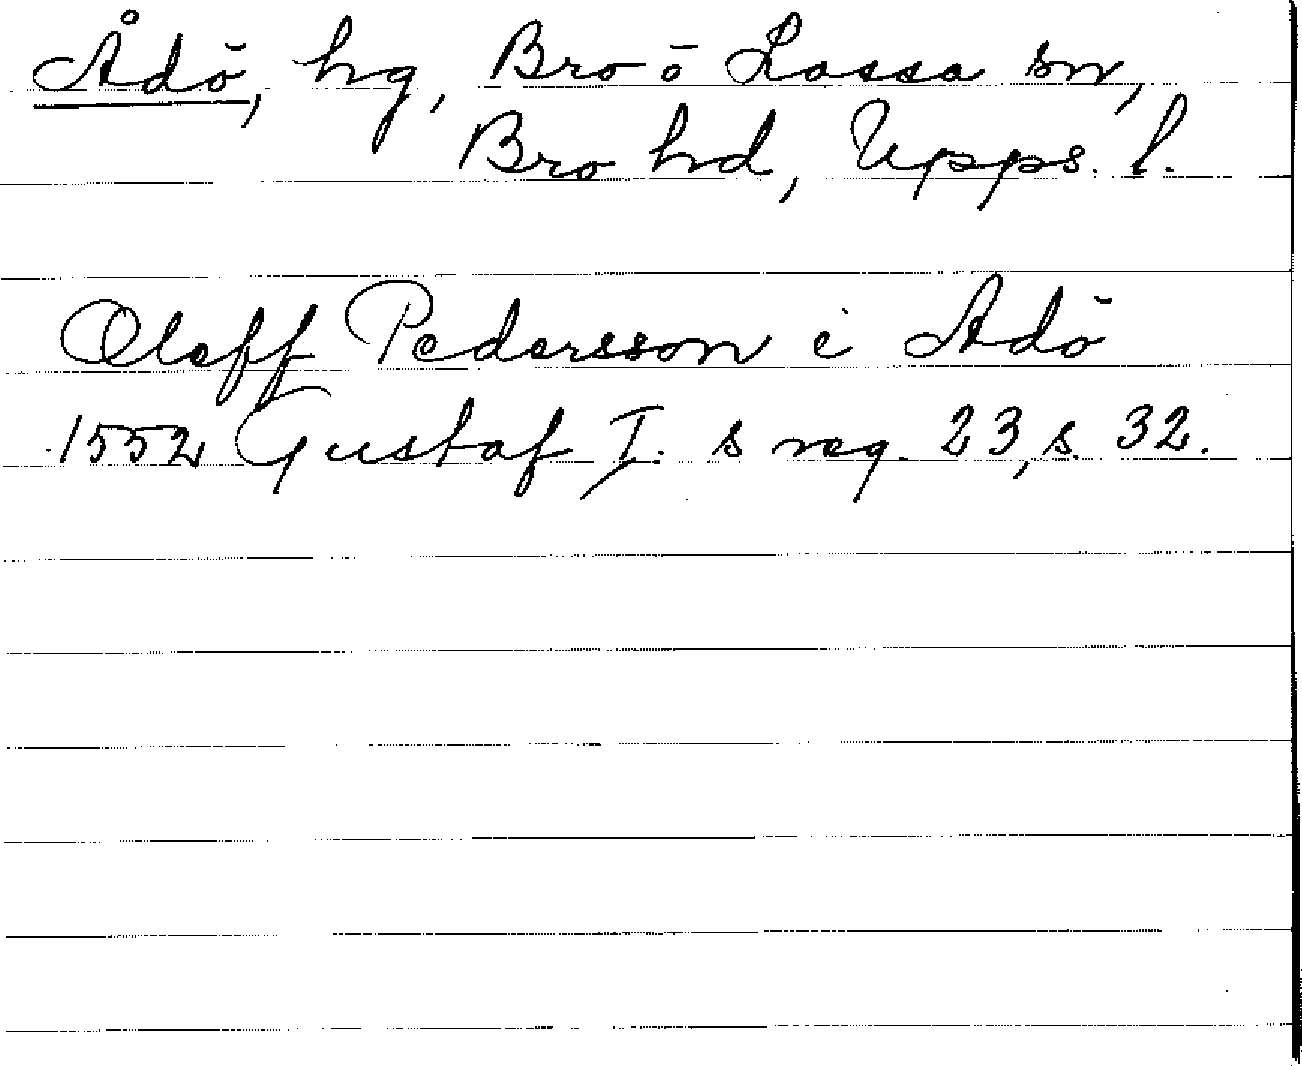 Ådö, hg, Bro o Lossa sn,
Bro hd, Upps. l.
Oleff Pedersson i Adö
1552 Gustaf I. s reg. 23, s. 32.